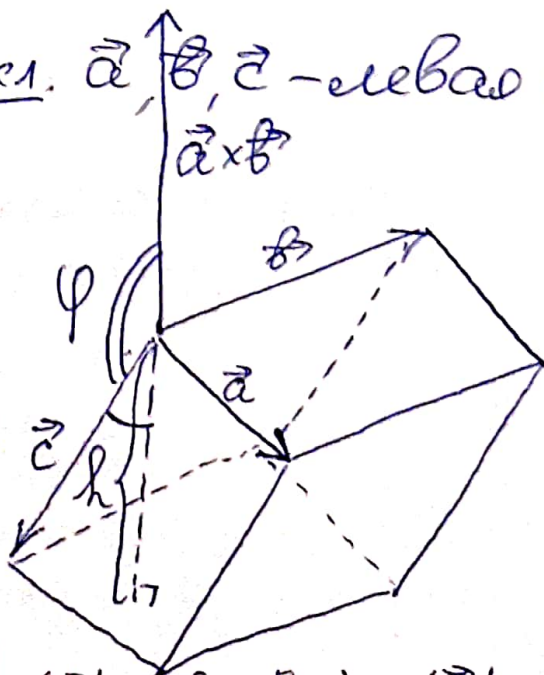 сл. a⃗, b⃗, c⃗ – левая
a⃗×b⃗
b⃗
φ
a⃗
c⃗
h